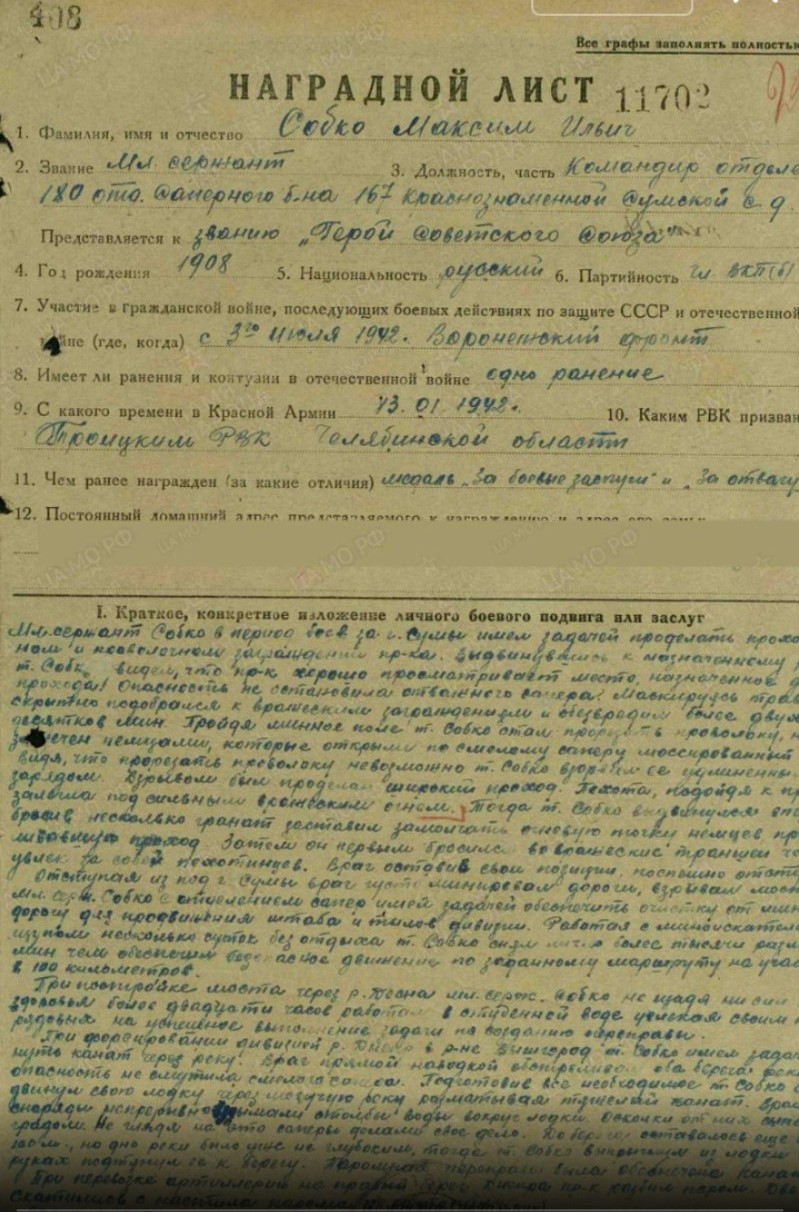 408
Все графы заполнять полностью
НАГРАДНОЙ ЛИСТ 11702
1. Фамилия, имя и отчество Собко Максим Ильич
2. Звание Мл сержант 3. Должность, часть Командир отделе
180 отд. Саперного б-на 167 Краснознаменной Сумской с. д.
Представляется к званию „Герой Советского Союза"
4. Год рождения 1908 5. Национальность русский 6. Партийность чл ВКП(б)
7. Участие в гражданской войне, последующих боевых действиях по защите СССР и отечественной
войне (где, когда) с 3го июля 1942. Воронежский фронт
8. Имеет ли ранения и контузии в отечественной войне одно ранение
9. С какого времени в Красной Армии 13.01.1942. 10. Каким РВК призван
Троицким РВК Челябинской области
11. Чем ранее награжден (за какие отличия) медаль „За боевые заслуги" и „За отвагу
12. Постоянный домашний адрес представляемого к награждению и адрес его семьи
I. Краткое, конкретное изложение личного боевого подвига или заслуг
Мл. сержант Собко в период боев за г. Сумы имел задачей проделать прохо
ном и проволочном заграждении пр-ка. Выдвинувшись к назначенному
т. Собко видел, что пр-к хорошо просматривает место, назначенное д
прохода! Опасность не остановила отважного сапера! Маскируясь трав
скрытно подобрался к вражеским заграждениям и обезвредил более двух
десятков мин. Пройдя минное поле т. Собко стал прорезать проволоку, н
замечен немцами, которые открыли по смелому саперу массированный
видя, что прорезать проволоку невозможно т. Собко взорвал ее удлиненны
зарядом. Взрывом был проделан широкий проход. Пехота, подойдя к пр
залегла под сильным вражеским огнем. Тогда т. Собко выдвинулся впе
бросив несколько гранат заставил замолчать огневую точку немцев пр
проход. Затем он первым бросился во вражеские траншеи
увлек за собой пехотинцев. Враг оставив свои позиции, поспешно отсту
Отступая из под г. Сумы враг густо минировал дороги, взрывал мост
Мл. серж. Собко с отделением сапер имел задачей обеспечить очистку от мин
дорогу для продвижения штаба и тылов дивизии. Работая с миноискателем
несколько суток без отдыха т. Собко снял лично более тысячи разли
мин чем обеспечил безопасное движение по заданному маршруту на учас
в 100 километров.
При постройке моста через р. Десна мл. серж. Собко не щадя ни сил
здоровья более двадцати часов работал в студеной воде увлекая своим
рядовых на успешное выполнение задачи по созданию переправы.
При форсировании дивизией р. Днепр в р-не Вышгород т. Собко имел задач
нуть канат через реку. Враг прямой наводкой обстреливал оба берега реки
опасность не смутила смелого сапера. Подготовив все необходимое т. Собко
двинул свою лодку через могучую реку разматывая тяжелый канат. Враж
снаряды непрерывно вздымали столбы воды вокруг лодки. Осколки от них сып
градом. Не глядя на это саперы делали свое дело. До берега оставалось еще
но дно реки было уже не глубоким, тогда т. Собко выпрыгнул из лодки
руках подтянул ее к берегу. Паромная переправа была обеспечена канат
При перевозке артиллерии на правый берег Днепра пр-к разбил паром.